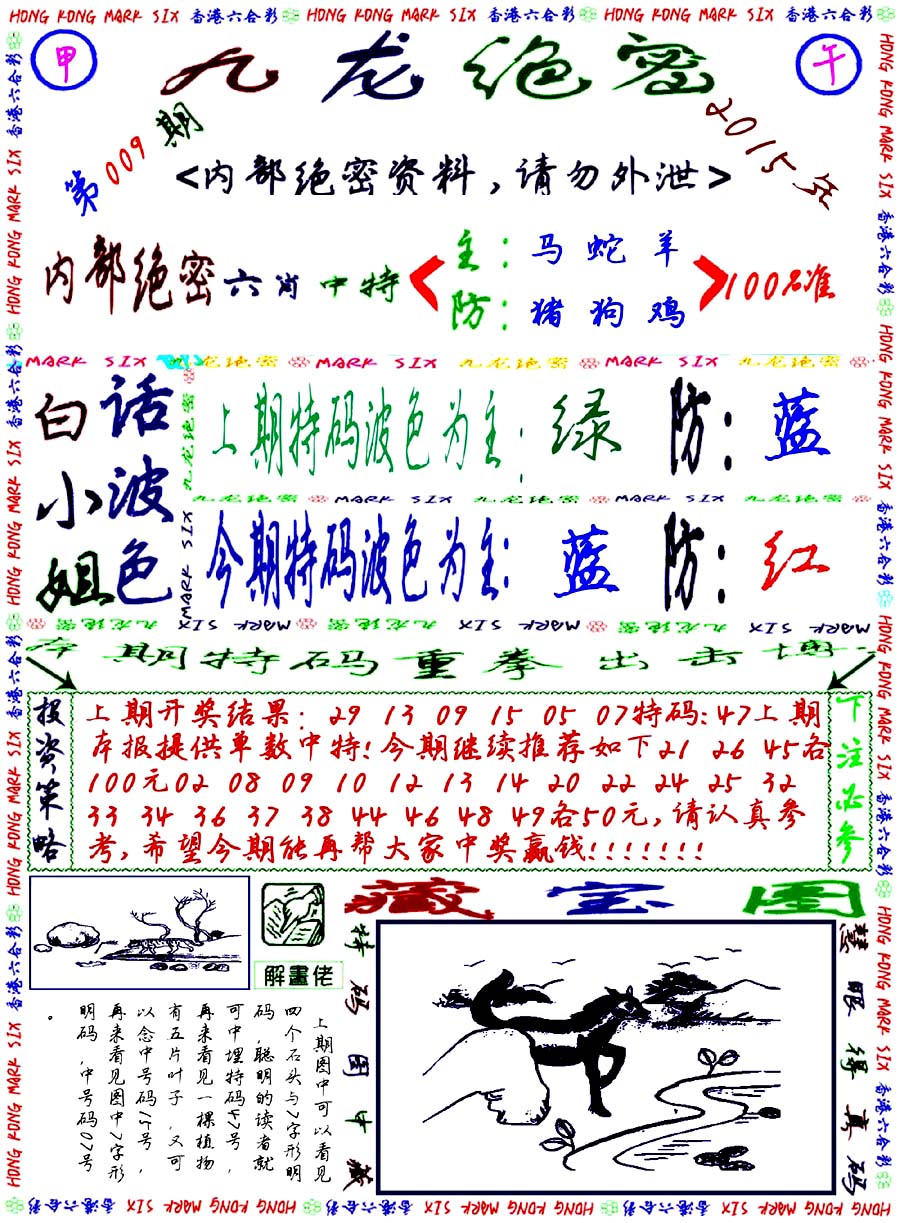 HONG KONG MARK SIX 香港六合彩 HONG KONG MARK SIX 香港六合彩 HONG KONG MARK SIX 香港六合彩
甲
九龙绝密
午
第009期
2015年
<内部绝密资料,请勿外泄>
内部绝密六肖中特
主:马蛇羊
防:猪狗鸡
100%准
MARK SIX 九龙绝密 MARK SIX 九龙绝密 MARK SIX 九龙绝密
白小姐
话波色
上期特码波色为主:绿 防:蓝
九龙绝密 MARK SIX 九龙绝密 MARK SIX 九龙绝密
今期特码波色为主:蓝 防:红
九龙绝密 MARK SIX 九龙绝密 MARK SIX 九龙绝密 MARK SIX
本期特码重拳出击博
投资策略
上期开奖结果: 29 13 09 15 05 07特码:47上期
本报提供单数中特!今期继续推荐如下21 26 45各
100元02 08 09 10 12 13 14 20 22 24 25 32
33 34 36 37 38 44 46 48 49各50元,请认真参
考,希望今期能再帮大家中奖赢钱!!!!!!!
下注必参
解畫佬
藏宝图
特码图中藏
慧眼得真码
上期图中可以看见
四个石头与7字形明
码,聪明的读者就
可中埋特码47号,
再来看见一棵植物
有五片叶子,又可
以念中号码15号,
再来看见图中7字形
明码,中号码07号
。
HONG KONG MARK SIX 香港六合彩 HONG KONG MARK SIX 香港六合彩 HONG KONG MARK SIX 香港六合彩